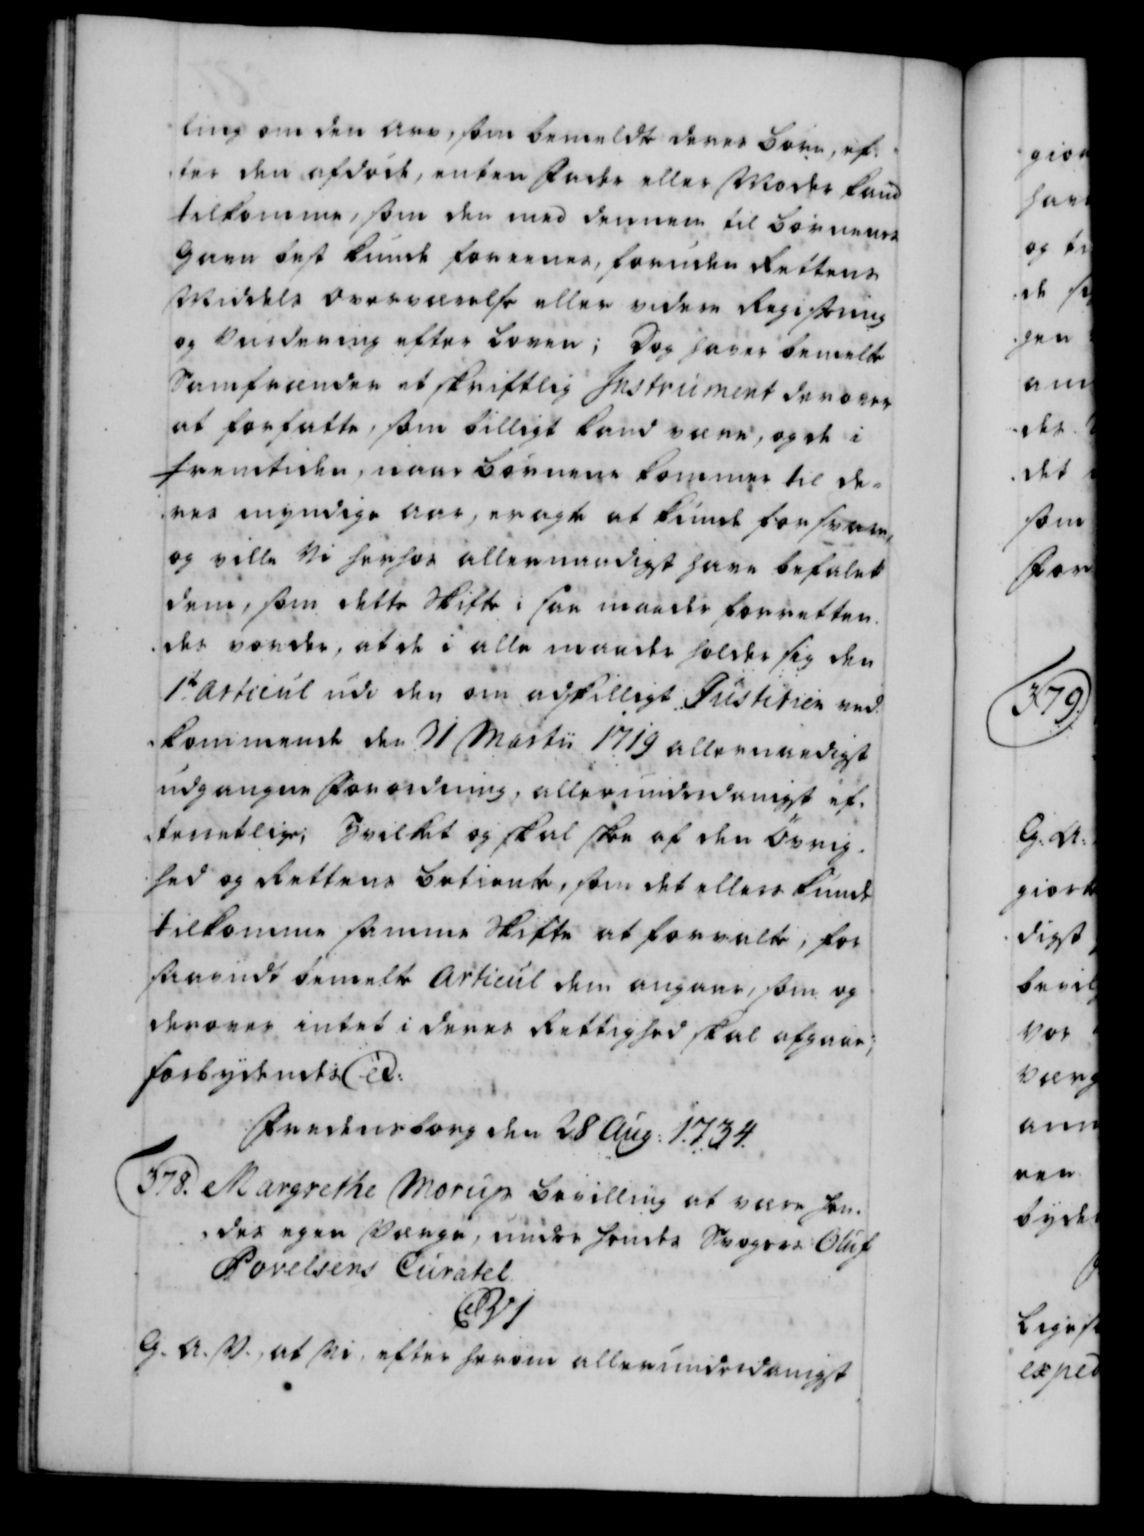 ling om den Arv, som bemeldte deres Børn, ef-
ter den afdøde, enten Fader eller Moder kand
tilkomme, som den med dennem til Børnenes
Gavn best kunde foreenes, foruden Rettens
Middels Overværelse eller videre Registring
og Vurdering efter Loven; Dog haver bemelte
Samfrænder et skriftlig Instrument derover
at forfatte, som billigt kand være, og de i
fremtiden, naar Børnene kommer til de-
res myndige Aar, eragte at kunde forsvare,
og ville Vi herhos allernaadigst have befalet
dem, som dette Skifte i saa maader forretten-
des vorder, at de i alle maader holder sig den
1te Articul udi den om adskilligt Justitien ved-
kommende den 31 Martii 1719 allernaadigst
udgangne Forordning, allerunderdanigst ef-
terretlige; Hvilket og skal skee af den Øvrig-
hed og Rettens Betiente, som det ellers kunde
tilkomme samme Skifte at forvalte, for
saavidt bemelte Articul dem angaar, som og
derover intet i deres Rettighed skal afgaae;
forbydendes etc:
Fredensborg den 28 Aug: 1734.
378. Margrethe Morups Bevilling at være hen-
des egen Værge, under hendes Svogers Oluf
Povelsens Curatel.
C 6ti
G. A. V., at Vi, efter herom allerunderdanigst
giort
have
og ti
de
gen
det
som
For
379
G. A.
giort
digst
bevilg
vor
Værg
ann
ren
byde
Ligest
exped